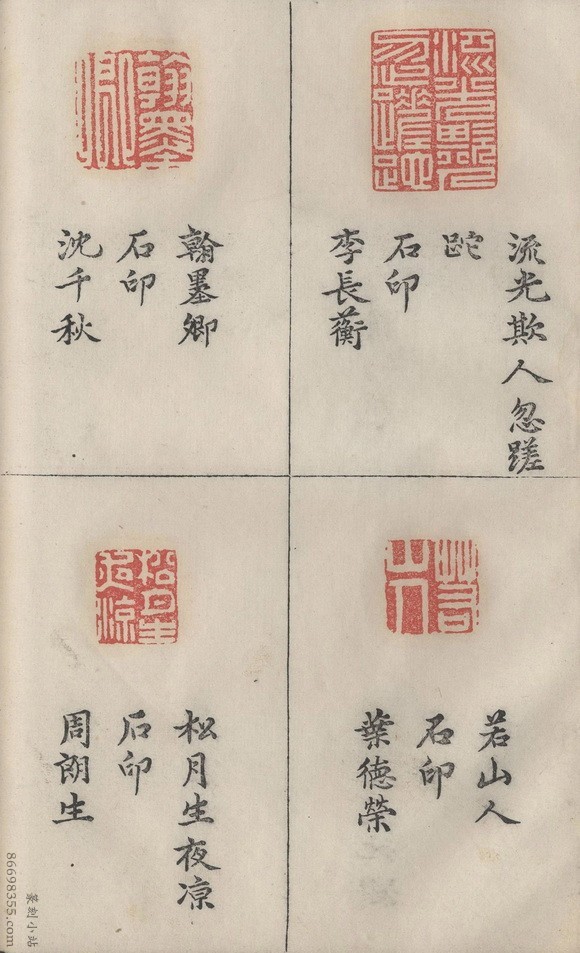 流光欺人忽蹉
跎
石印
李長蘅
翰墨卿
石印
沈千秋
若山人
石印
葉德榮
松月生夜凉
石印
周朗生
篆刻小站
86698355.com